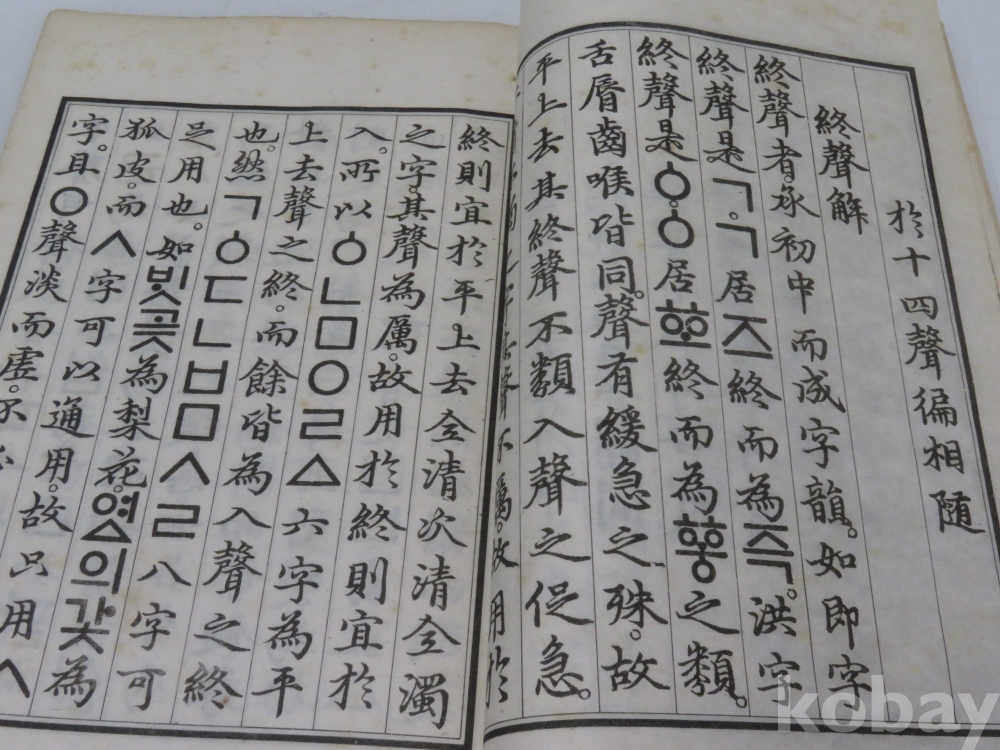 於十四聲徧相随
終聲解
終聲者。承初中而成字韻。如即字
終聲是ㄱ。ㄱ居즈終而為즉。洪字
終聲是ㆁ。ㆁ居ᅘᅩ終而為ᅘᅩᇰ之類。
舌脣齒喉皆同。聲有緩急之殊。故
平上去其終聲不類入聲之促急。
聲不厲。故用於
終則宜於平上去。全清次清全濁
之字。其聲為厲。故用於終則宜於
入。所以ㆁㄴㅁㅇㄹㅿ六字為平
上去聲之終。而餘皆為入聲之終
也。然ㄱㆁㄷㄴㅂㅁㅅㄹ八字可
足用也。如ᄇᆡᆺ곶為梨花。여ᇫ의갗為
狐皮。而ㅅ字可以通用。故只用ㅅ
字。且ㅇ聲淡而虛。不
kobay